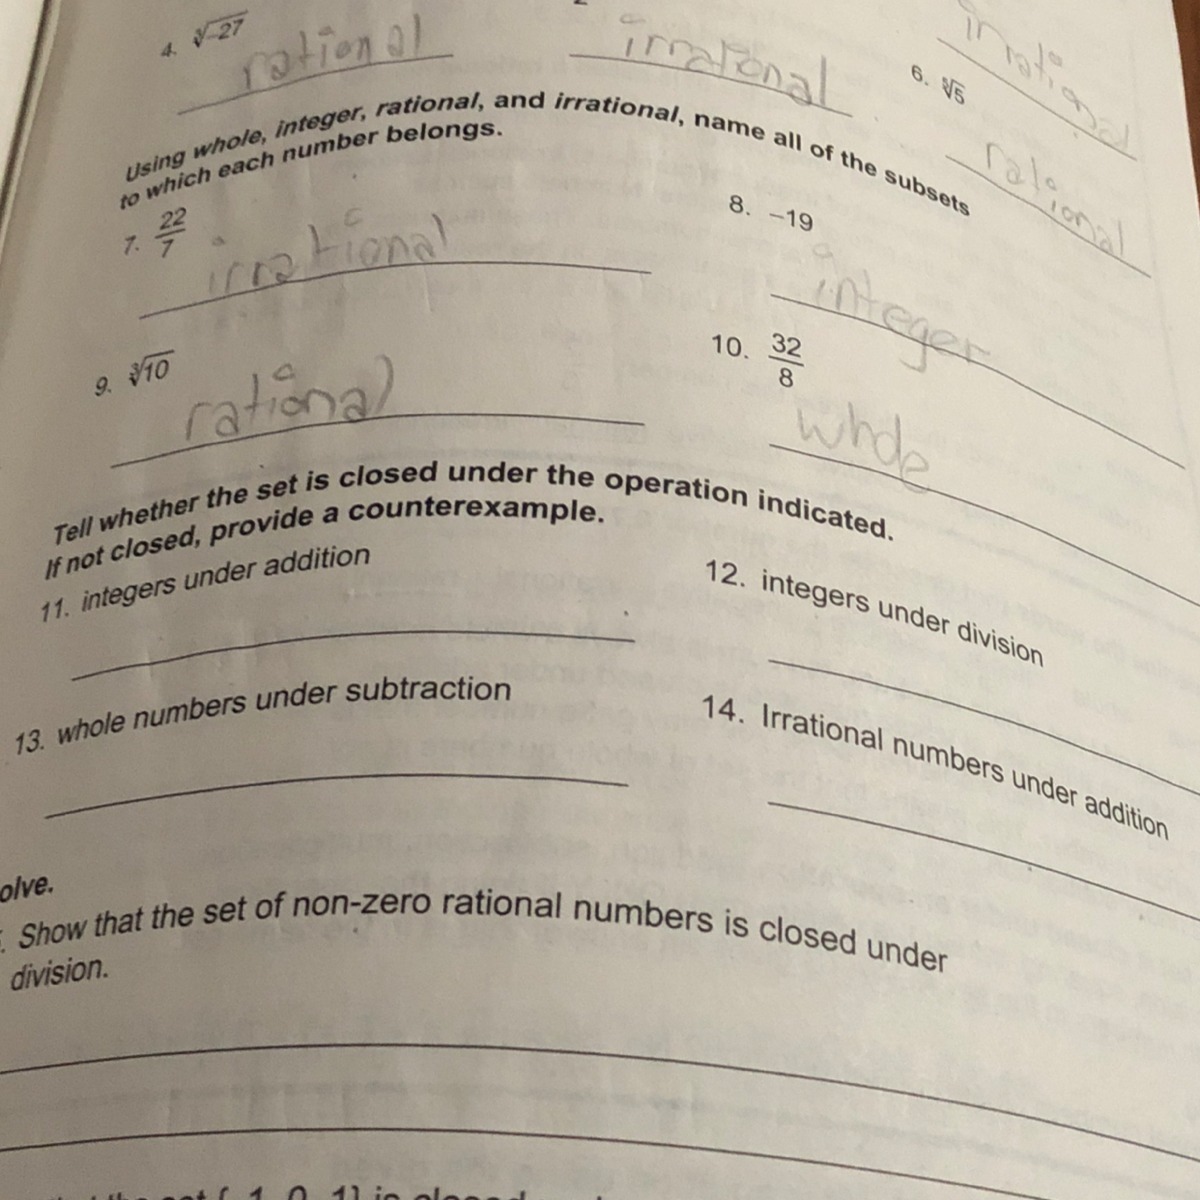 4. ∛-27
rational
irrational
irrational
6. √5
rational
Using whole, integer, rational, and irrational, name all of the subsets
to which each number belongs.
7. 22/7
irrational
8. -19
integer
9. ∛10
rational
10. 32/8
whole
Tell whether the set is closed under the operation indicated.
If not closed, provide a counterexample.
11. integers under addition
12. integers under division
13. whole numbers under subtraction
14. Irrational numbers under addition
olve.
. Show that the set of non-zero rational numbers is closed under
division.